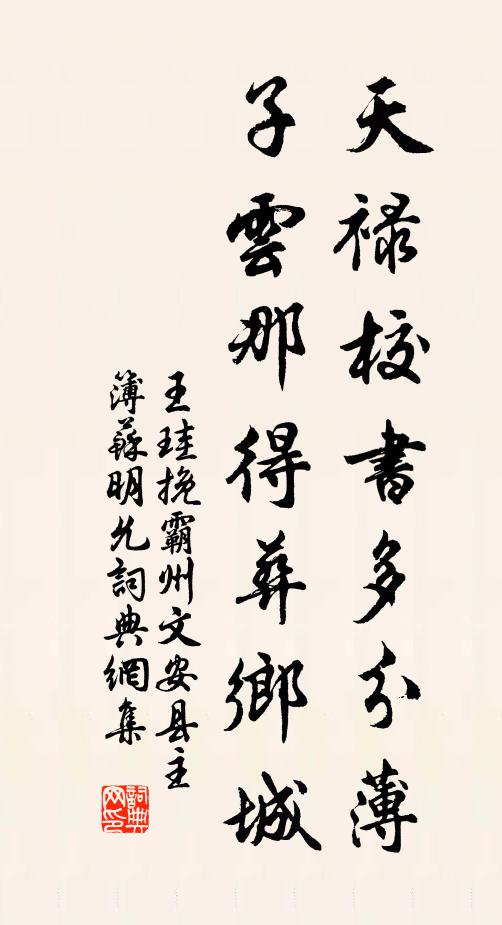 天禄校書多分薄
子雲那得葬鄉城
王珪挽霸州文安县主
簿蘇明允詞典網集
詞典
网印